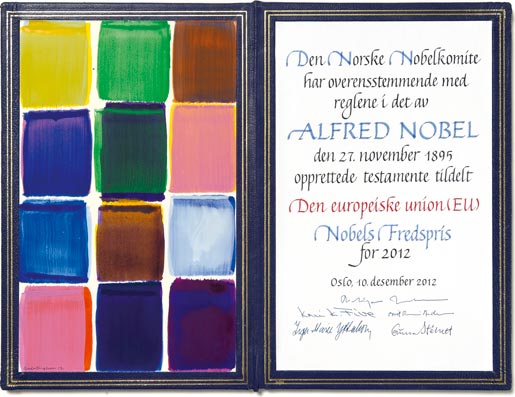 Den Norske Nobelkomite
har overensstemmende med
reglene i det av
ALFRED NOBEL
den 27. november 1895
opprettede testamente tildelt
Den europeiske union (EU)
Nobels Fredspris
for 2012
Oslo, 10. desember 2012